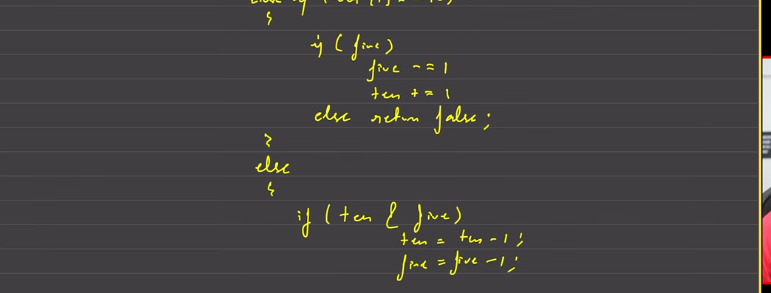 {
if (five)
five -= 1
ten += 1
else return false;
}
else
{
if (ten & five)
ten = ten - 1;
five = five - 1;